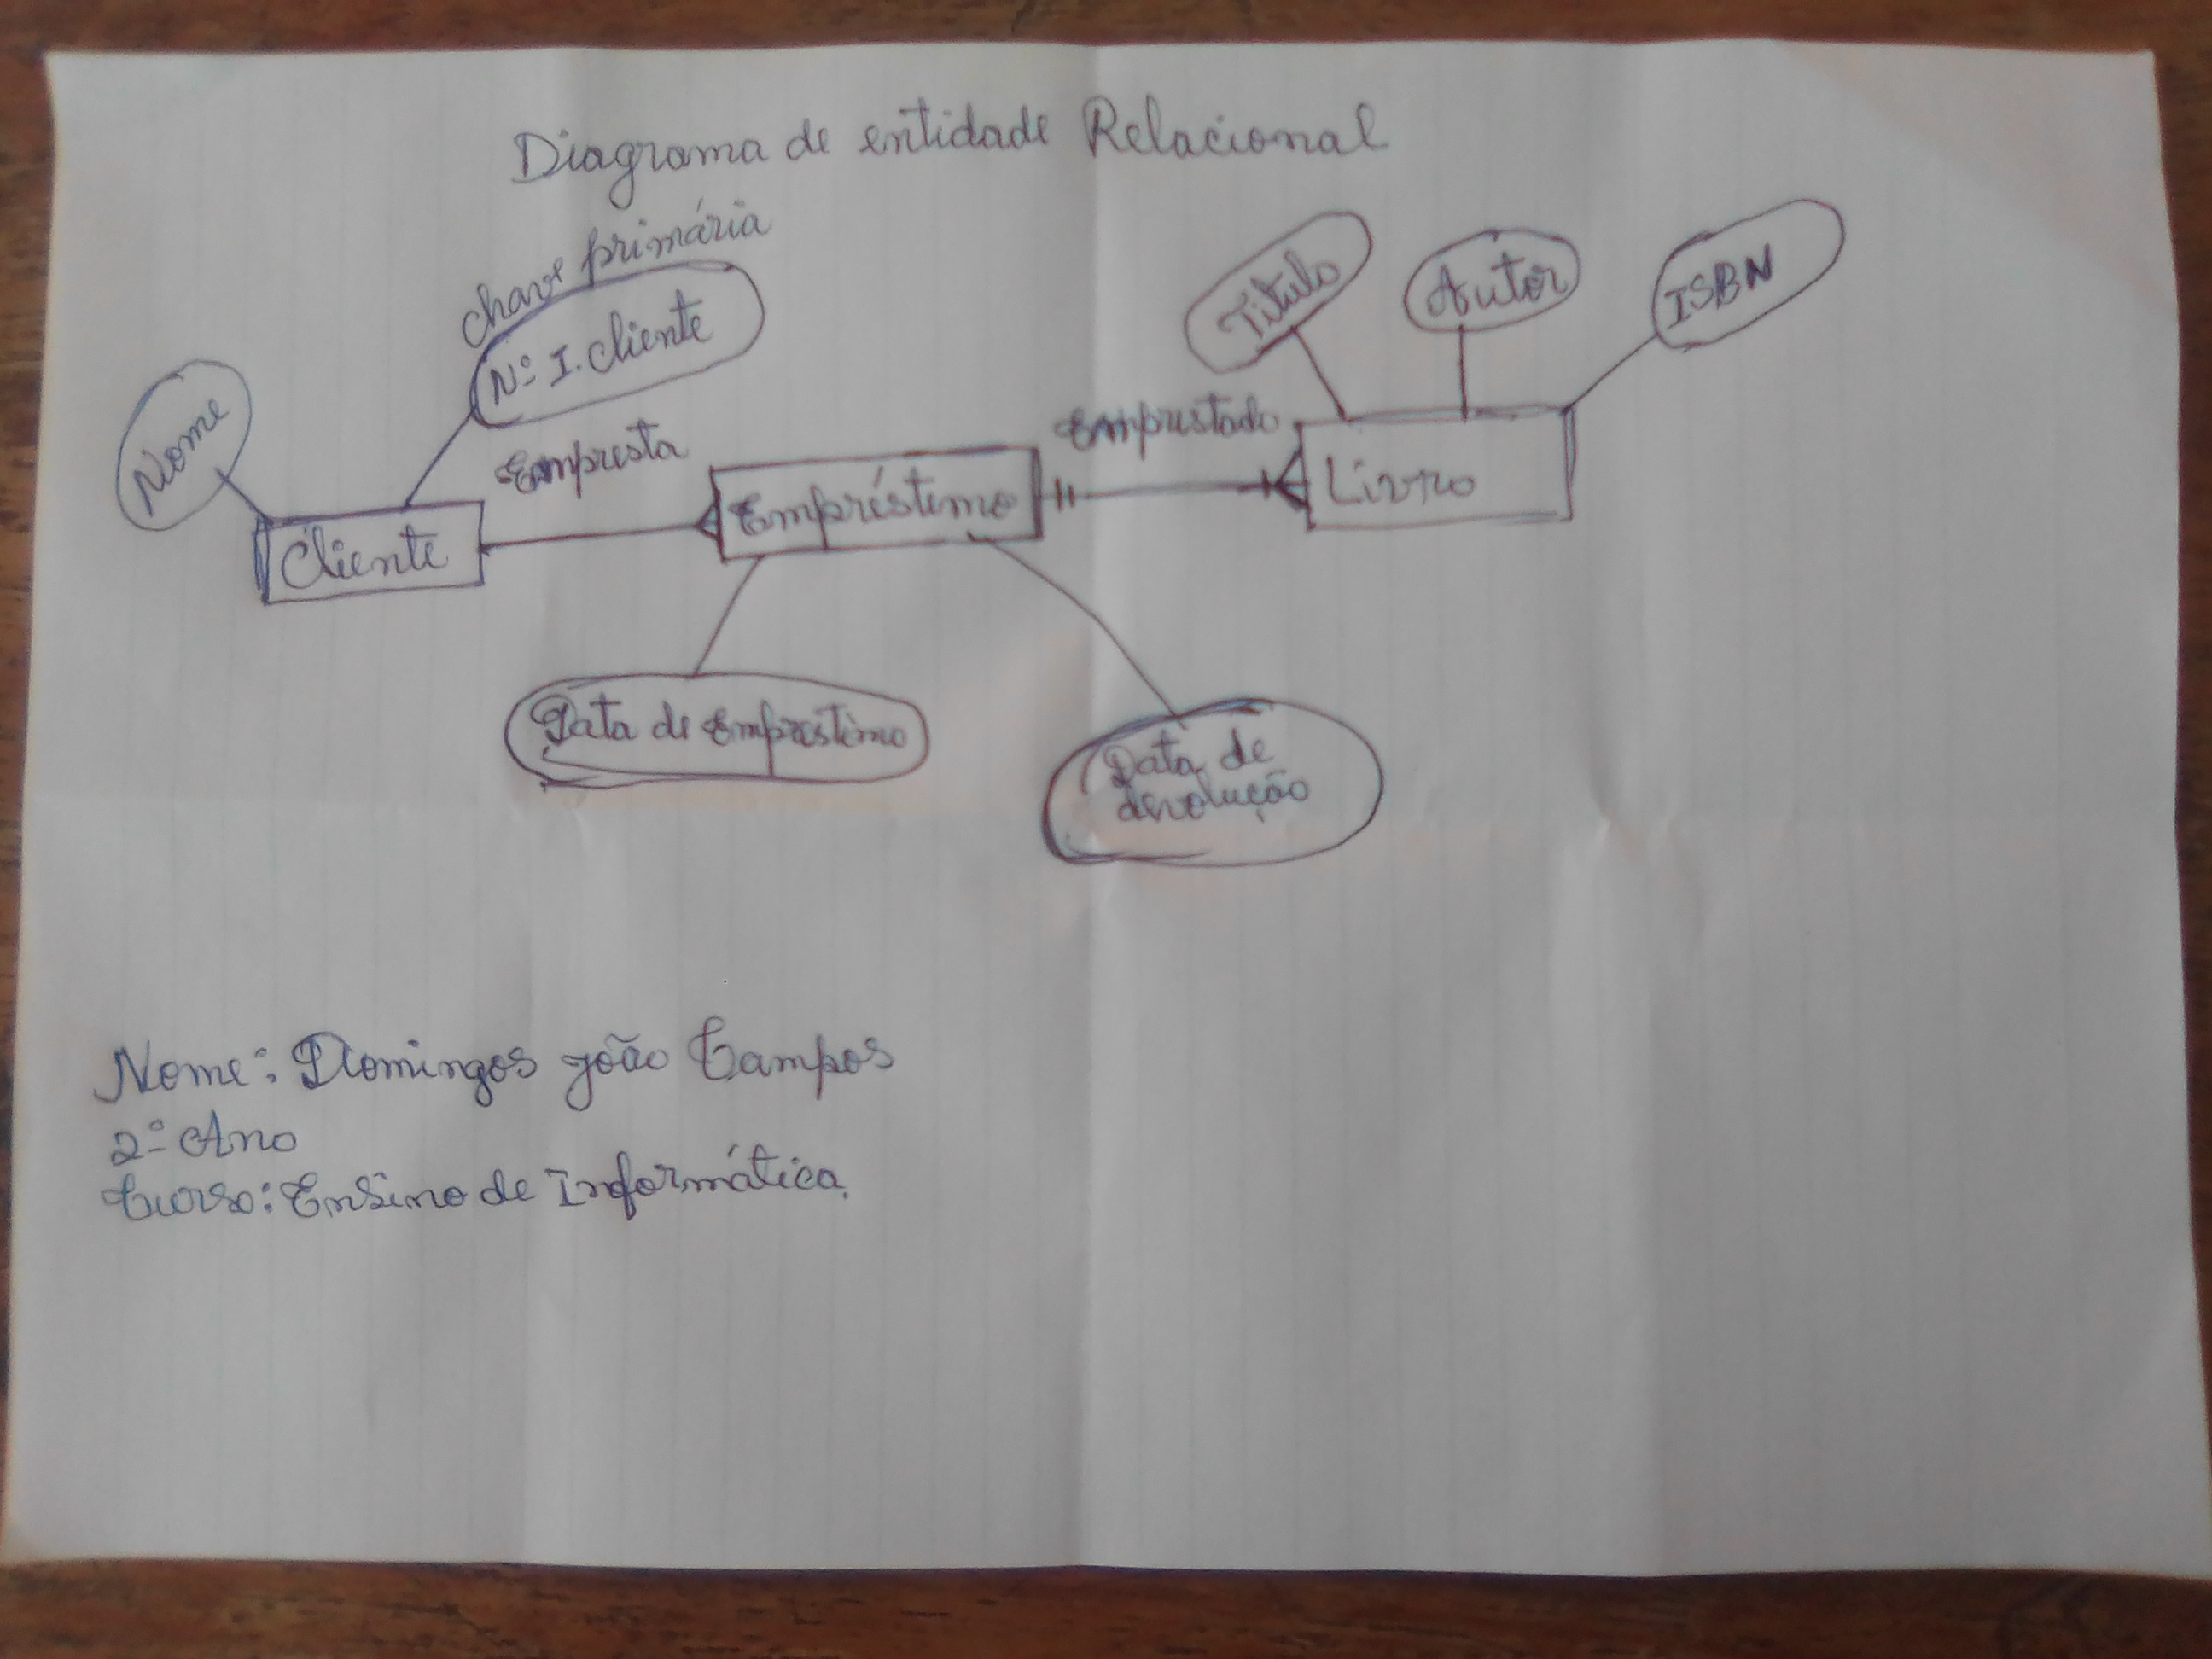 Diagrama de entidade Relacional
chave primária
Nº I. cliente
Nome
Titulo
Autor
ISBN
Empresta
Emprestado
Cliente
Empréstimo
Livro
Data de Empréstimo
Data de
devolução
Nome: Domingos joão Campos
2º Ano
Curso: Ensino de Informática.